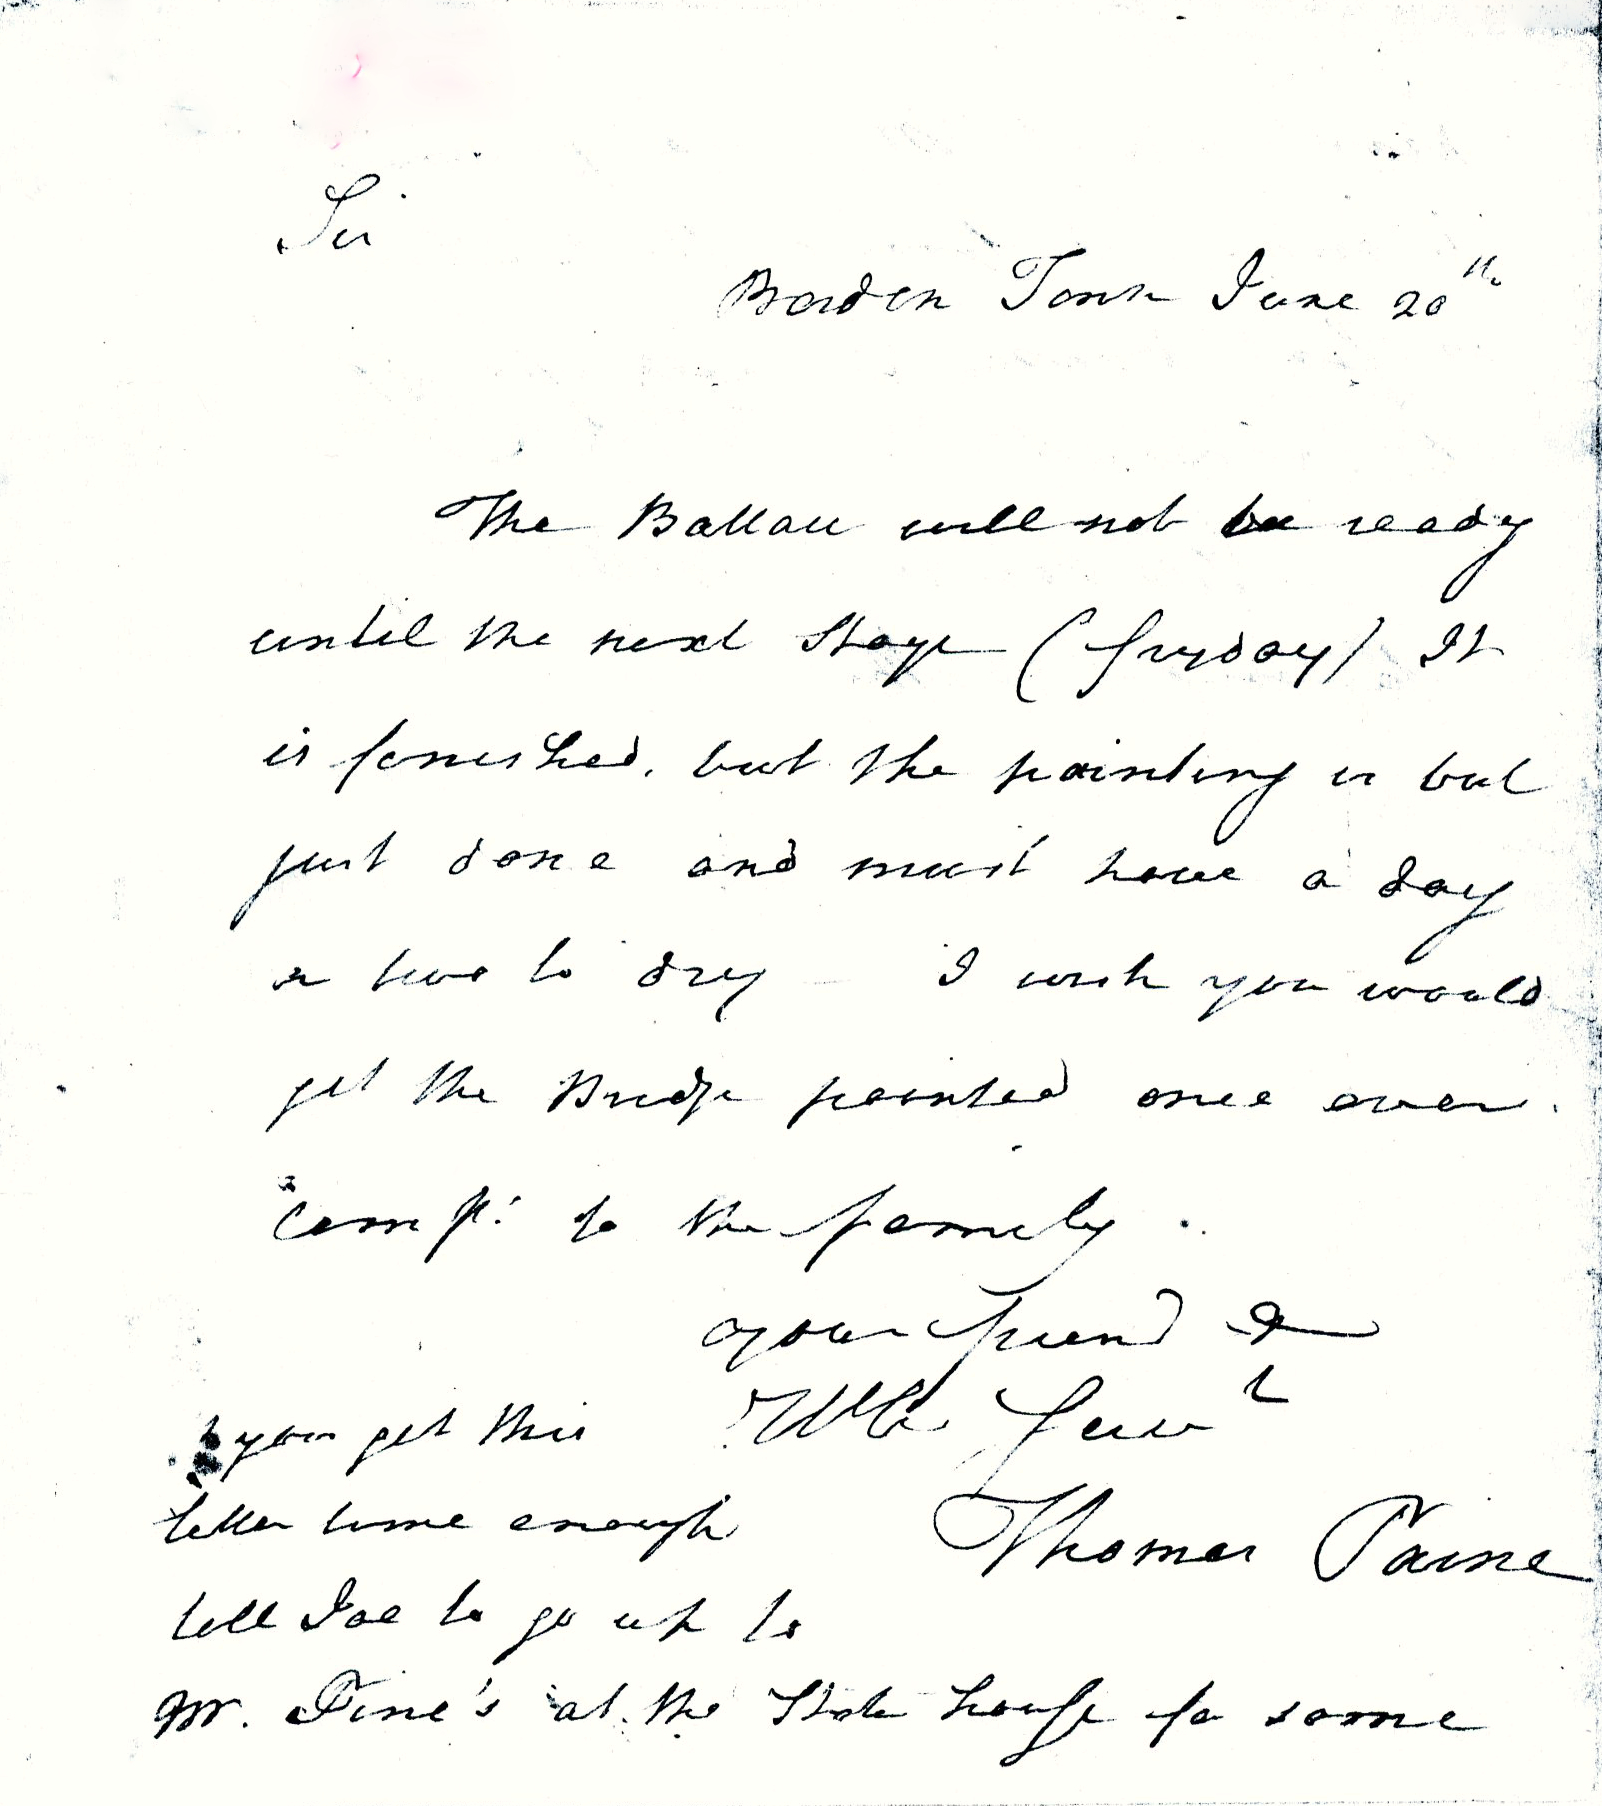 Sir
Borden Town June 20th
The Ballau will not be ready
until the next Stage (fryday) It
is finished, but the painting is but
just done and must have a day
or two to dry – I wish you would
get the Bridge painted once over.
Compts. to the family.
your friend &
Hble Servt
Thomas Paine
you get this
letter time enough
tell Joe to go up to
Mr. Pine's at the State house for some